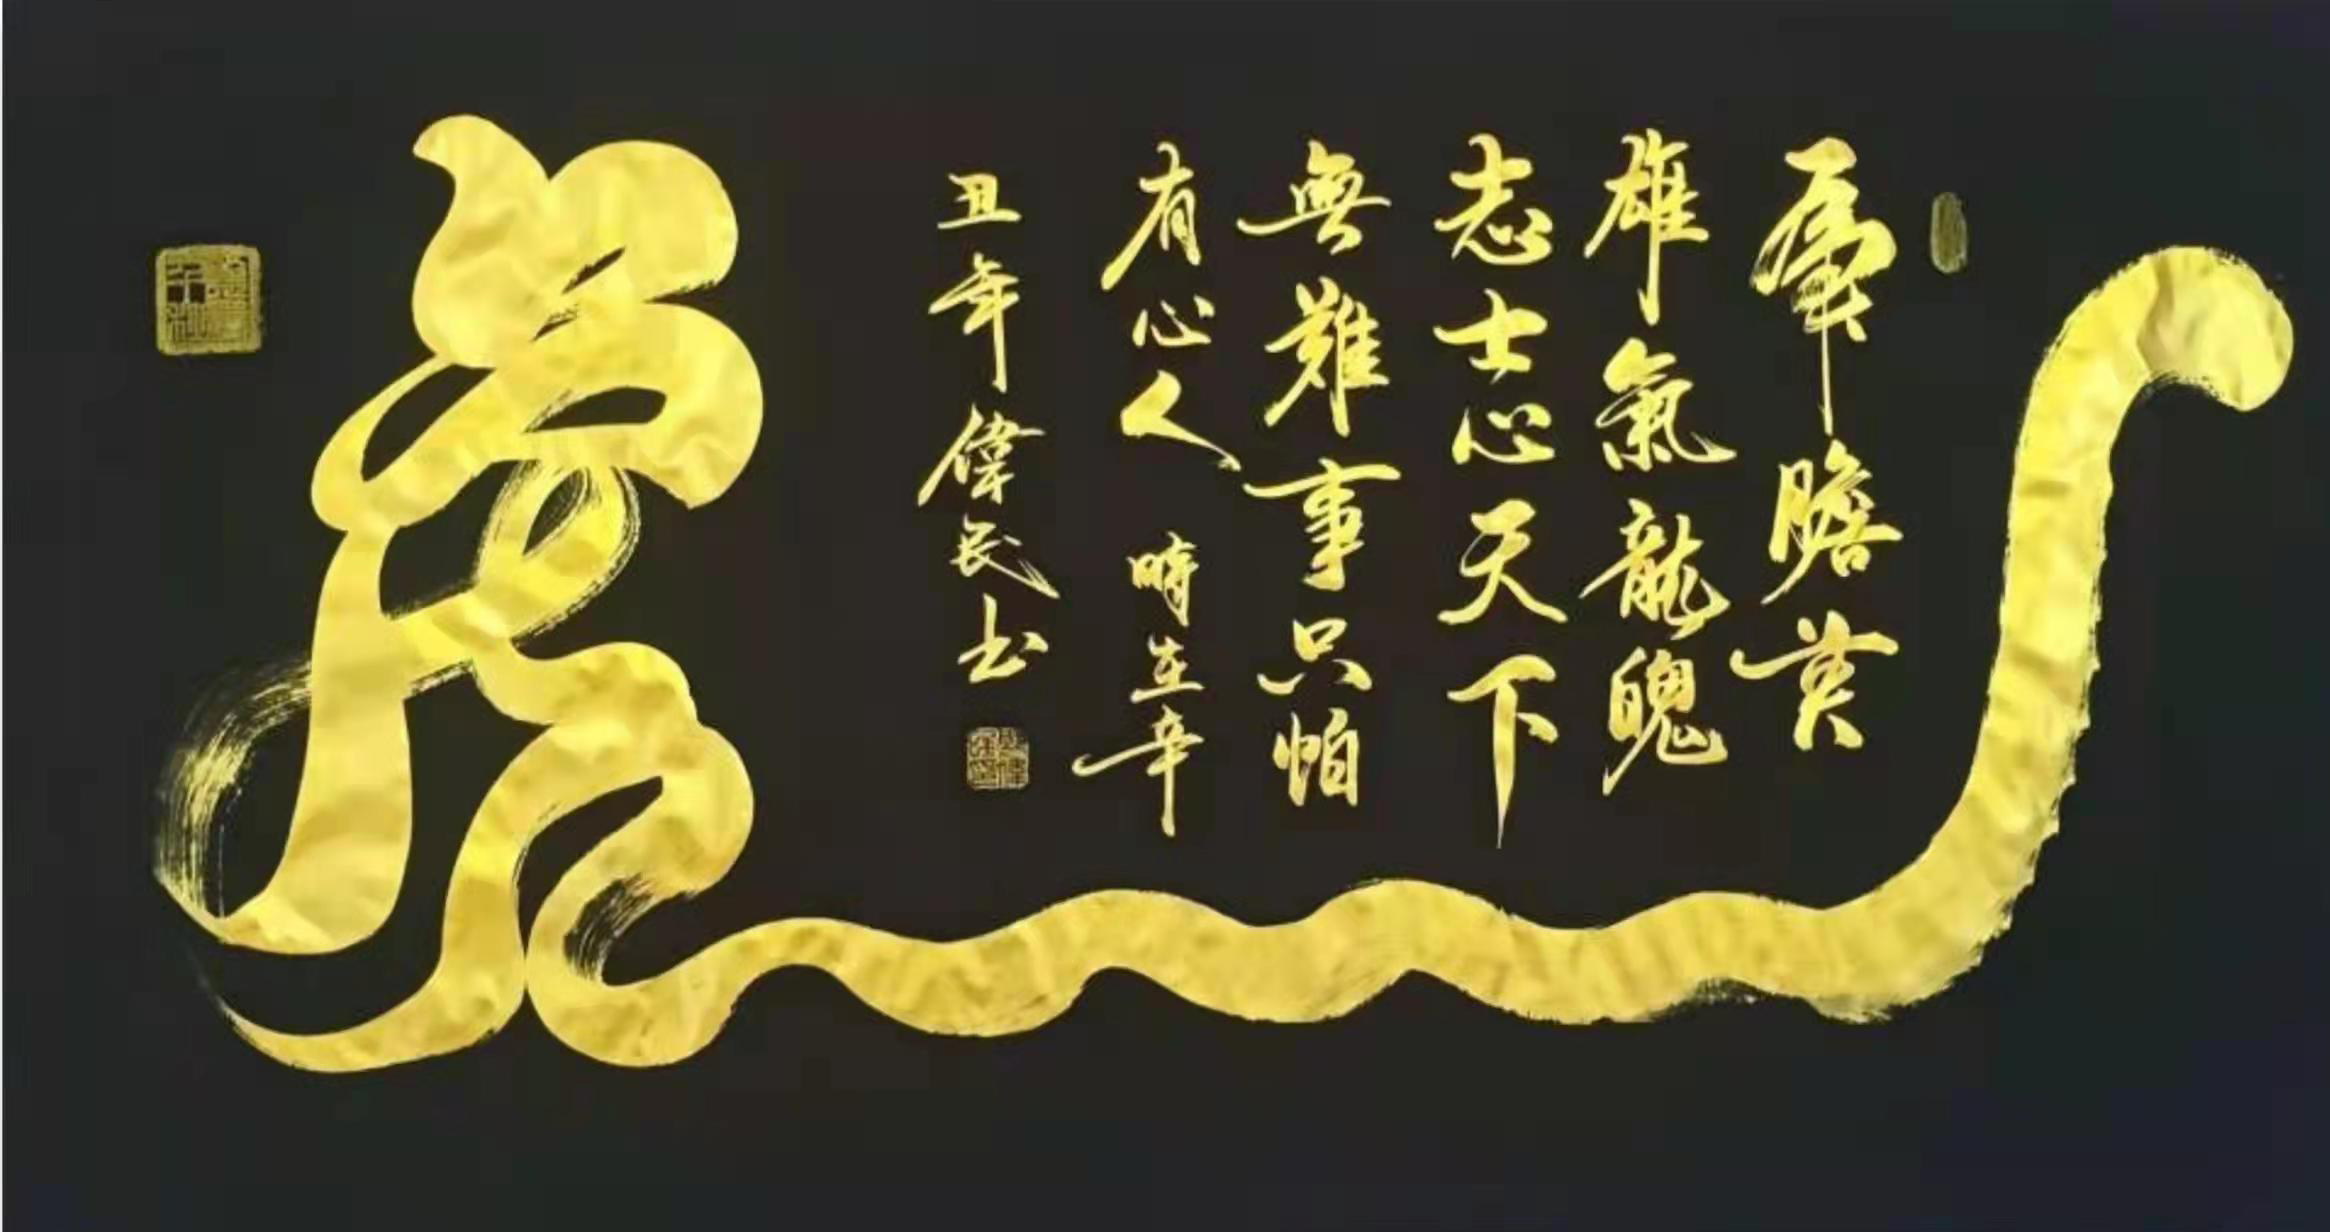 虎膽英
雄氣龍魄
志士心天下
無難事只怕
有心人 時在辛
丑年偉民书
虎